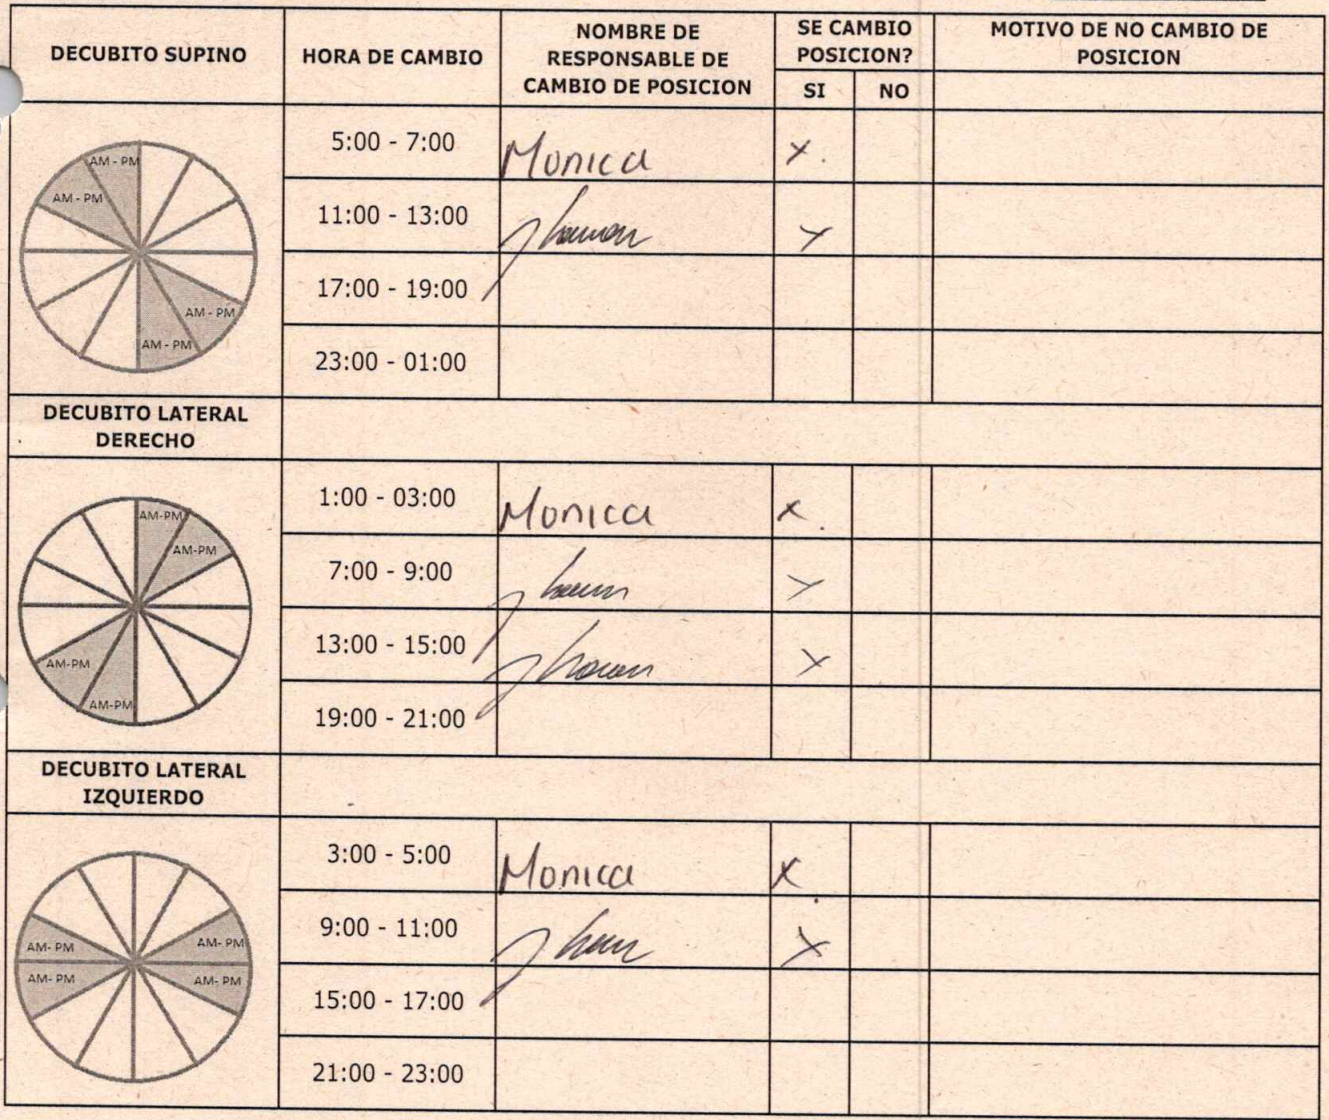 DECUBITO SUPINO
HORA DE CAMBIO
NOMBRE DE
RESPONSABLE DE
CAMBIO DE POSICION
SE CAMBIO
POSICION?
SI
NO
MOTIVO DE NO CAMBIO DE
POSICION
AM - PM
AM - PM
AM - PM
AM - PM
5:00 - 7:00 Monica x.
11:00 - 13:00 x
17:00 - 19:00
23:00 - 01:00
DECUBITO LATERAL
DERECHO
AM-PM
AM-PM
AM-PM
AM-PM
1:00 - 03:00 Monica x.
7:00 - 9:00 x
13:00 - 15:00 x
19:00 - 21:00
DECUBITO LATERAL
IZQUIERDO
AM- PM
AM- PM
AM- PM
AM- PM
3:00 - 5:00 Monica x.
9:00 - 11:00 x
15:00 - 17:00
21:00 - 23:00